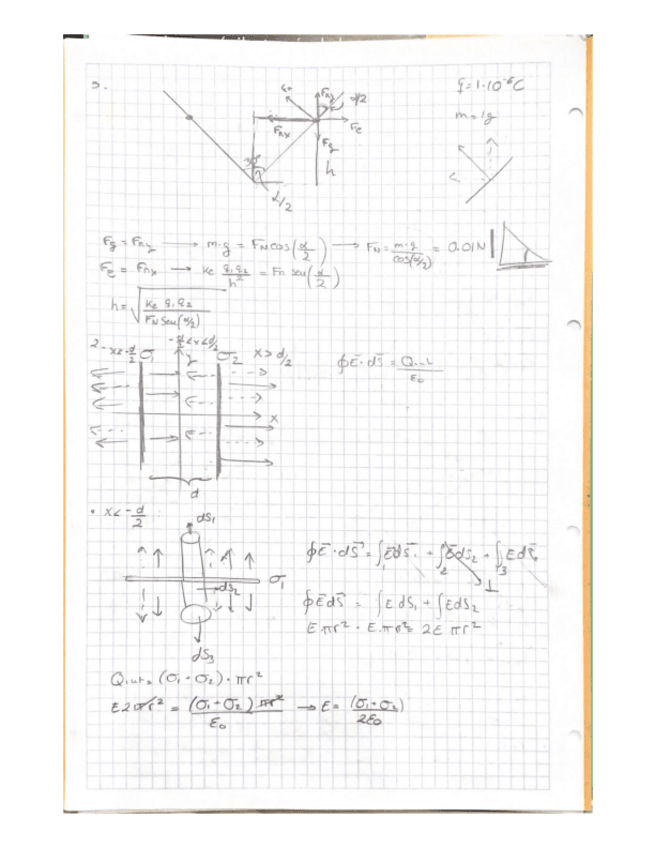 q = 1·10⁻⁶C
m = 1g
α/2
Fe
Fnx
Fg
h
α/2
Fg = Fny → m·g = FN cos(α/2) → FN = m·g / cos(α/2) = 0.01N
Fe = Fnx → Ke q₁q₂ / h² = Fn sen(α/2)
h = √(Ke q₁q₂ / FN Sen(α/2))
2- x<-d/2 σ₁ -d/2<x<d/2 σ₂ x>d/2
∮E·dS = Qint / ε₀
x
d
• x<-d/2
dS₁
σ₁
dS₂
dS₃
∮E·dS = ∫₁EdS₁ + ∫₂EdS₂ + ∫₃EdS₃
⊥
∮EdS = ∫EdS₁ + ∫EdS₂
E·πr² + E·πr² = 2E πr²
Qint = (σ₁+σ₂)·πr²
E2πr² = (σ₁+σ₂)πr² / ε₀ → E = (σ₁+σ₂) / 2ε₀